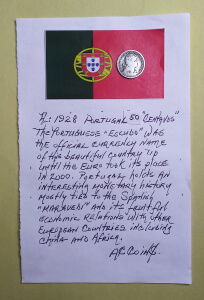 1928 PORTUGAL 50 "CENTAVOS"
THE PORTUGUESE "ESCUDO" WAS
THE OFFICIAL CURRENCY NAME
OF THE BEAUTIFUL COUNTRY UP
UNTIL THE EURO TOOK ITS PLACE
IN 2000. PORTUGAL HOLDS AN
INTERESTING MONETARY HISTORY
MOSTLY TIED TO THE SPANISH
"MARAVEDI" AND ITS FRUITFUL
ECONOMIC RELATIONS WITH OTHER
EUROPEAN COUNTRIES INCLUDING
CHINA AND AFRICA.